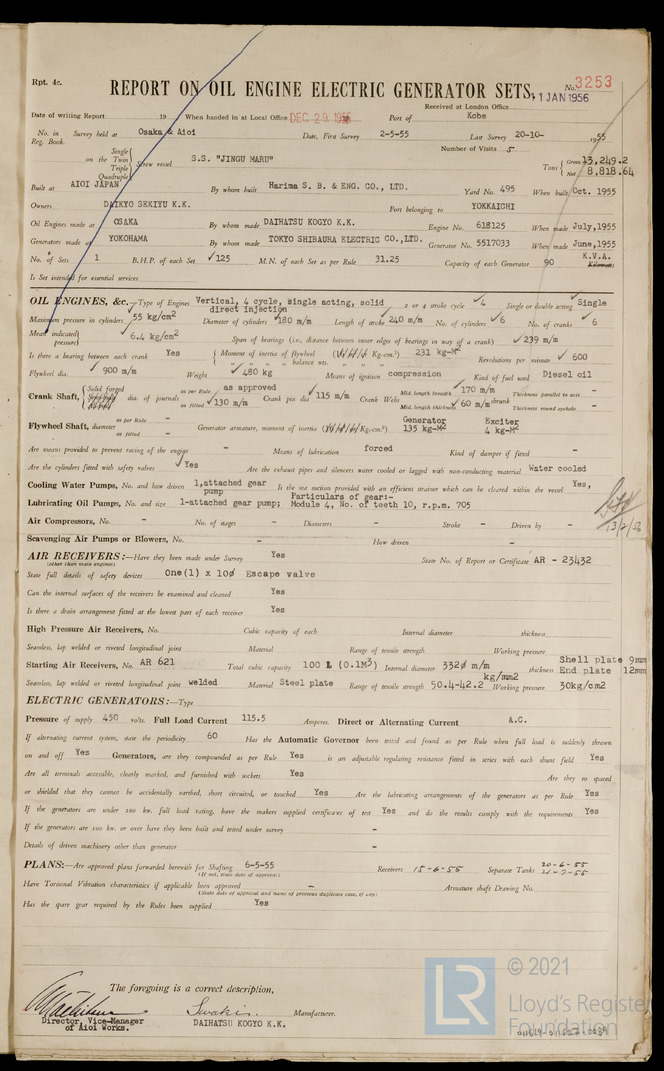 Rpt. 4c.
REPORT ON OIL ENGINE ELECTRIC GENERATOR SETS.
No. 3253
Received at London Office 11 JAN 1956
Date of writing Report 19 When handed in at Local Office DEC 29 1955 Port of Kobe
No. in Reg. Book. Survey held at Osaka & Aioi Date, First Survey 2-5-55 Last Survey 20-10- 1955
Number of Visits 5
Single on the Twin Triple Quadruple Screw vessel S.S. "JINGU MARU" Tons Gross 13,249.2 Net 8,818.64
Built at AIOI JAPAN By whom built Harima S. B. & ENG. CO., LTD. Yard No. 495 When built Oct. 1955
Owners DAIKYO SEKIYU K.K. Port belonging to YOKKAICHI
Oil Engines made at OSAKA By whom made DAIHATSU KOGYO K.K. Engine No. 618125 When made July,1955
Generators made at YOKOHAMA By whom made TOKYO SHIBAURA ELECTRIC CO.,LTD. Generator No. 5517033 When made June,1955
No. of Sets 1 B.H.P. of each Set 125 M.N. of each Set as per Rule 31.25 Capacity of each Generator 90 K.V.A. Kilowatts
Is Set intended for essential services
OIL ENGINES, &c.—Type of Engines Vertical, 4 cycle, single acting, solid direct injection 2 or 4 stroke cycle 4 Single or double acting Single
Maximum pressure in cylinders 55 kg/cm2 Diameter of cylinders 180 m/m Length of stroke 240 m/m No. of cylinders 6 No. of cranks 6
Mean indicated pressure 6.4 kg/cm2 Span of bearings (i.e., distance between inner edges of bearings in way of a crank) 239 m/m
Is there a bearing between each crank Yes Moment of inertia of flywheel ( Kg-cm.2) 231 kg-M2 Revolutions per minute 600
" " " balance wts.
Flywheel dia. 900 m/m Weight 480 kg Means of ignition compression Kind of fuel used Diesel oil
Crank Shaft, Solid forged dia. of journals as per Rule as approved as fitted 130 m/m Crank pin dia 115 m/m Crank Webs Mid. length breadth 170 m/m Mid. length thickness 60 m/m shrunk Thickness parallel to axis - Thickness round eyehole -
Flywheel Shaft, diameter as per Rule - as fitted - Generator armature, moment of inertia ( Kg.cm.2) Generator 135 kg-M2 Exciter 4 kg-M2
Are means provided to prevent racing of the engine - Means of lubrication forced Kind of damper if fitted -
Are the cylinders fitted with safety valves Yes Are the exhaust pipes and silencers water cooled or lagged with non-conducting material Water cooled
Cooling Water Pumps, No. and how driven 1,attached gear pump Is the sea suction provided with an efficient strainer which can be cleared within the vessel Yes,
Lubricating Oil Pumps, No. and size 1-attached gear pump; Particulars of gear:- Module 4, No. of teeth 10, r.p.m. 705
Air Compressors, No. - No. of stages - Diameters - Stroke - Driven by -
Scavenging Air Pumps or Blowers, No. - How driven -
13/2/56
AIR RECEIVERS:—Have they been made under Survey Yes State No. of Report or Certificate AR - 23432
(other than main engines)
State full details of safety devices One(1) x 10ø Escape valve
Can the internal surfaces of the receivers be examined and cleaned Yes
Is there a drain arrangement fitted at the lowest part of each receiver Yes
High Pressure Air Receivers, No. Cubic capacity of each Internal diameter thickness
Seamless, lap welded or riveted longitudinal joint Material Range of tensile strength Working pressure
Starting Air Receivers, No. AR 621 Total cubic capacity 100 L (0.1M3) Internal diameter 332ø m/m thickness Shell plate 9mm End plate 12mm
Seamless, lap welded or riveted longitudinal joint welded Material Steel plate Range of tensile strength 50.4-42.2 kg/mm2 Working pressure 30kg/cm2
ELECTRIC GENERATORS:—Type
Pressure of supply 450 volts. Full Load Current 115.5 Amperes. Direct or Alternating Current A.C.
If alternating current system, state the periodicity 60 Has the Automatic Governor been tested and found as per Rule when full load is suddenly thrown
on and off Yes Generators, are they compounded as per Rule Yes is an adjustable regulating resistance fitted in series with each shunt field Yes
Are all terminals accessible, clearly marked, and furnished with sockets Yes Are they so spaced
or shielded that they cannot be accidentally earthed, short circuited, or touched Yes Are the lubricating arrangements of the generators as per Rule Yes
If the generators are under 100 kw. full load rating, have the makers supplied certificates of test Yes and do the results comply with the requirements Yes
If the generators are 100 kw. or over have they been built and tested under survey -
Details of driven machinery other than generator -
PLANS:—Are approved plans forwarded herewith for Shafting 6-5-55 Receivers 15-6-55 Separate Tanks 20-6-55
(If not, state date of approval)
Have Torsional Vibration characteristics if applicable been approved - Armature shaft Drawing No.
(State date of approval and name of previous duplicate case, if any)
Has the spare gear required by the Rules been supplied Yes
The foregoing is a correct description,
Manufacturer.
Director, Vice-Manager
of Aioi Works.
DAIHATSU KOGYO K.K.
LR
© 2021
Lloyd's Register
Foundation